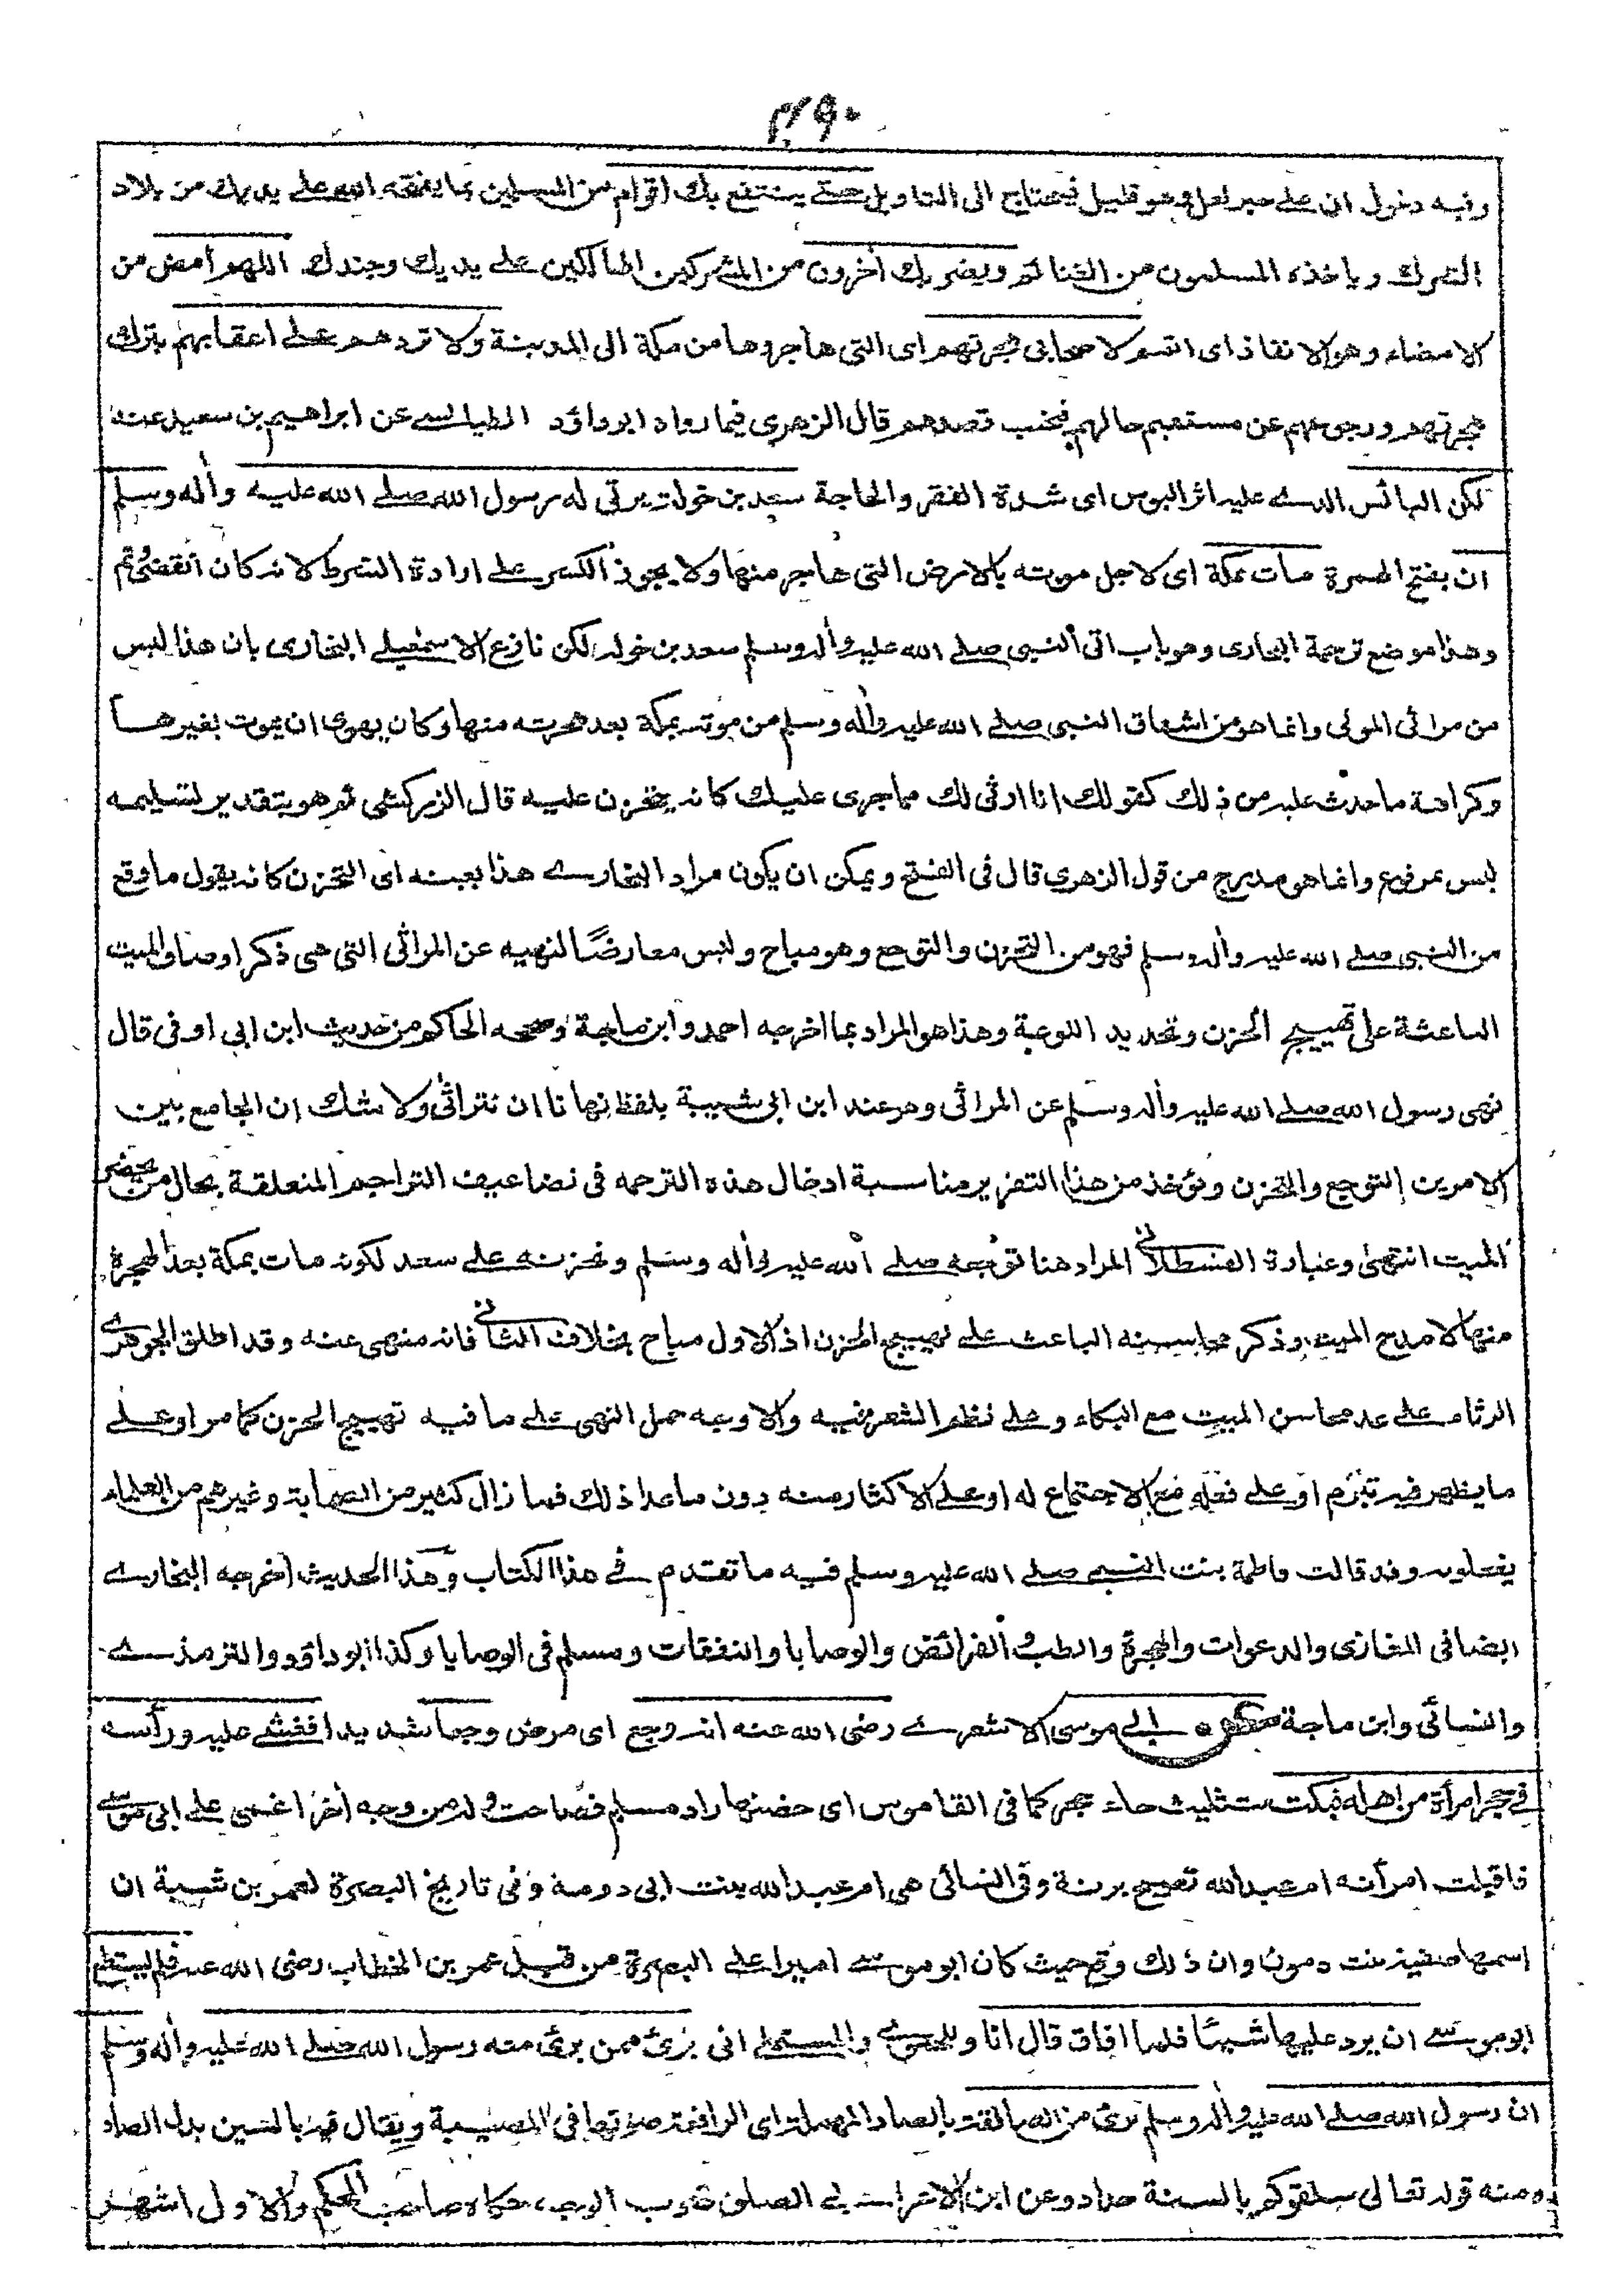 ٣٩٠
وفيه دخول ان على خبر لعل وهو قليل فيحتاج الى التاويل حتے ينتفع بك اقوام من المسلمين بما يفتحه الله على يديك من بلاد
الشرك وياخذه المسلمون من الغنائم ويضر بك أخرون من المشركين الهالكين على يديك وجندك اللهم أمض من
الامضاء وهو الانفاذ اى اتمم لاصحابى هجرتهم اى التى هاجروها من مكة الى المدينة ولا تردهم على اعقابهم بترك
هجرتهم ورجوعهم عن مستقيم حالهم فيخيب قصدهم قال الزهرى فيما رواه ابو داؤد الطيالسے عن ابراهيم بن سعيد عنه
لكن البائس الذے عليه اثر البوس اى شدة الفقر والحاجة سعد بن خولة يرثى له رسول الله صلے الله عليه وأله وسلم
ان بفتح الهمزة مات بمكة اى لاجل موته بالارض التى هاجر منها ولا يجوز الكسر على ارادة الشرط لانه كان انقضى وتم
وهذا موضع ترجمة البخارى وهو باب اثى النبى صلے الله عليه وأله وسلم سعد بن خوله لكن نازع الاسمعيلے البخارى بان هذا ليس
من مراثى الموتى وانما هو من اشفاق النبى صلے الله عليه وأله وسلم من موته بمكة بعد هجرته منها وكان يهوى ان يموت بغيرها
وكراهة ما حدث عليه من ذلك كقولك انا ارثى لك مما جرى عليك كانه يتحزن عليه قال الزركشى ثم هو بتقدير تسليمه
ليس بمرفوع وانما هو مدرج من قول الزهرى قال فى الفتح ويمكن ان يكون مراد البخارے هذا بعينه اى التحزن كانه يقول ما وقع
من النبى صلے الله عليه وأله وسلم فهو من التحزن والتوجع وهو مباح وليس معارضًا لنهيه عن المراثى التى هى ذكر اوصاف الميت
الباعثة على تهييج الحزن وتجديد اللوعة وهذا هو المراد بما اخرجه احمد وابن ماجة وصححه الحاكم من حديث ابن ابى اوفى قال
نهى رسول الله صلے الله عليه وأله وسلم عن المراثى وهو عند ابن ابى شيبة بلفظ نهانا ان نتراثى ولا شك ان الجامع بين
الامرين التوجع والتحزن ويؤخذ من هذا التقرير مناسبة ادخال هذه الترجمه فى تضاعيف التراجم المتعلقة بحال من يحضر
الميت انتهى وعبارة القسطلانى المراد هنا توجعه صلے الله عليه وأله وسلم وتحزنه على سعد لكونه مات بمكة بعد الهجرة
منها لا مدح الميت وذكر محاسنه الباعث على تهييج الحزن اذ الاول مباح بخلاف الثانى فانه منهى عنه وقد اطلق الجوهرى
الرثاء على عد محاسن الميت مع البكاء وعلى نظم الشعر فيه والاوجه حمل النهى على ما فيه تهييج الحزن كما مر او على
ما يظهر فيه تبرم او على فعله مع الاجتماع له او على الاكثار منه دون ما عدا ذلك فما زال كثير من الصحابة وغيرهم من العلماء
يفعلونه وقد قالت فاطمة بنت النبى صلے الله عليه وسلم فيه ما تقدم فے هذا الكتاب وهذا الحديث اخرجه البخارے
ايضا فى المغازى والدعوات والهجرة والطب والفرائض والوصايا والنفقات ومسلم فى الوصايا وكذا ابو داؤد والترمذے
والنسائى وابن ماجة عن ابے موسى الاشعرے رضى الله عنه انه وجع اى مرض وجعا شديدا فغشے عليه ورأسه
فے حجر امرأة من اهله فبكت بتثليث حاء حجر كما فى القاموس اى حضنها زاد مسلم فصاحت وله من وجه أخر اغمى على ابى موسے
فاقبلت امرأته ام عبد الله تصيح برنة وفى النسائى هى ام عبد الله بنت ابى دومة وفى تاريخ البصرة لعمر بن شبة ان
اسمها صفية بنت دمون وان ذلك وقع حيث كان ابو موسے اميرا على البصرة من قبل عمر بن الخطاب رضى الله عنه فلم يستطع
ابو موسے ان يرد عليها شيئا فلما افاق قال انا وللحموے والمستملے انى بريئ ممن برئ منه رسول الله صلے الله عليه وأله وسلم
ان رسول الله صلے الله عليه وأله وسلم برئ من الصالقة بالصاد المهملة اى الرافعة صوتها فى المصيبة ويقال فيه بالسين بدل الصاد
ومنه قوله تعالى سلقوكم بالسنة حداد وعن ابن الاعرابے الصلق ضرب الوجه حكاه صاحب المحكم والاول اشهر